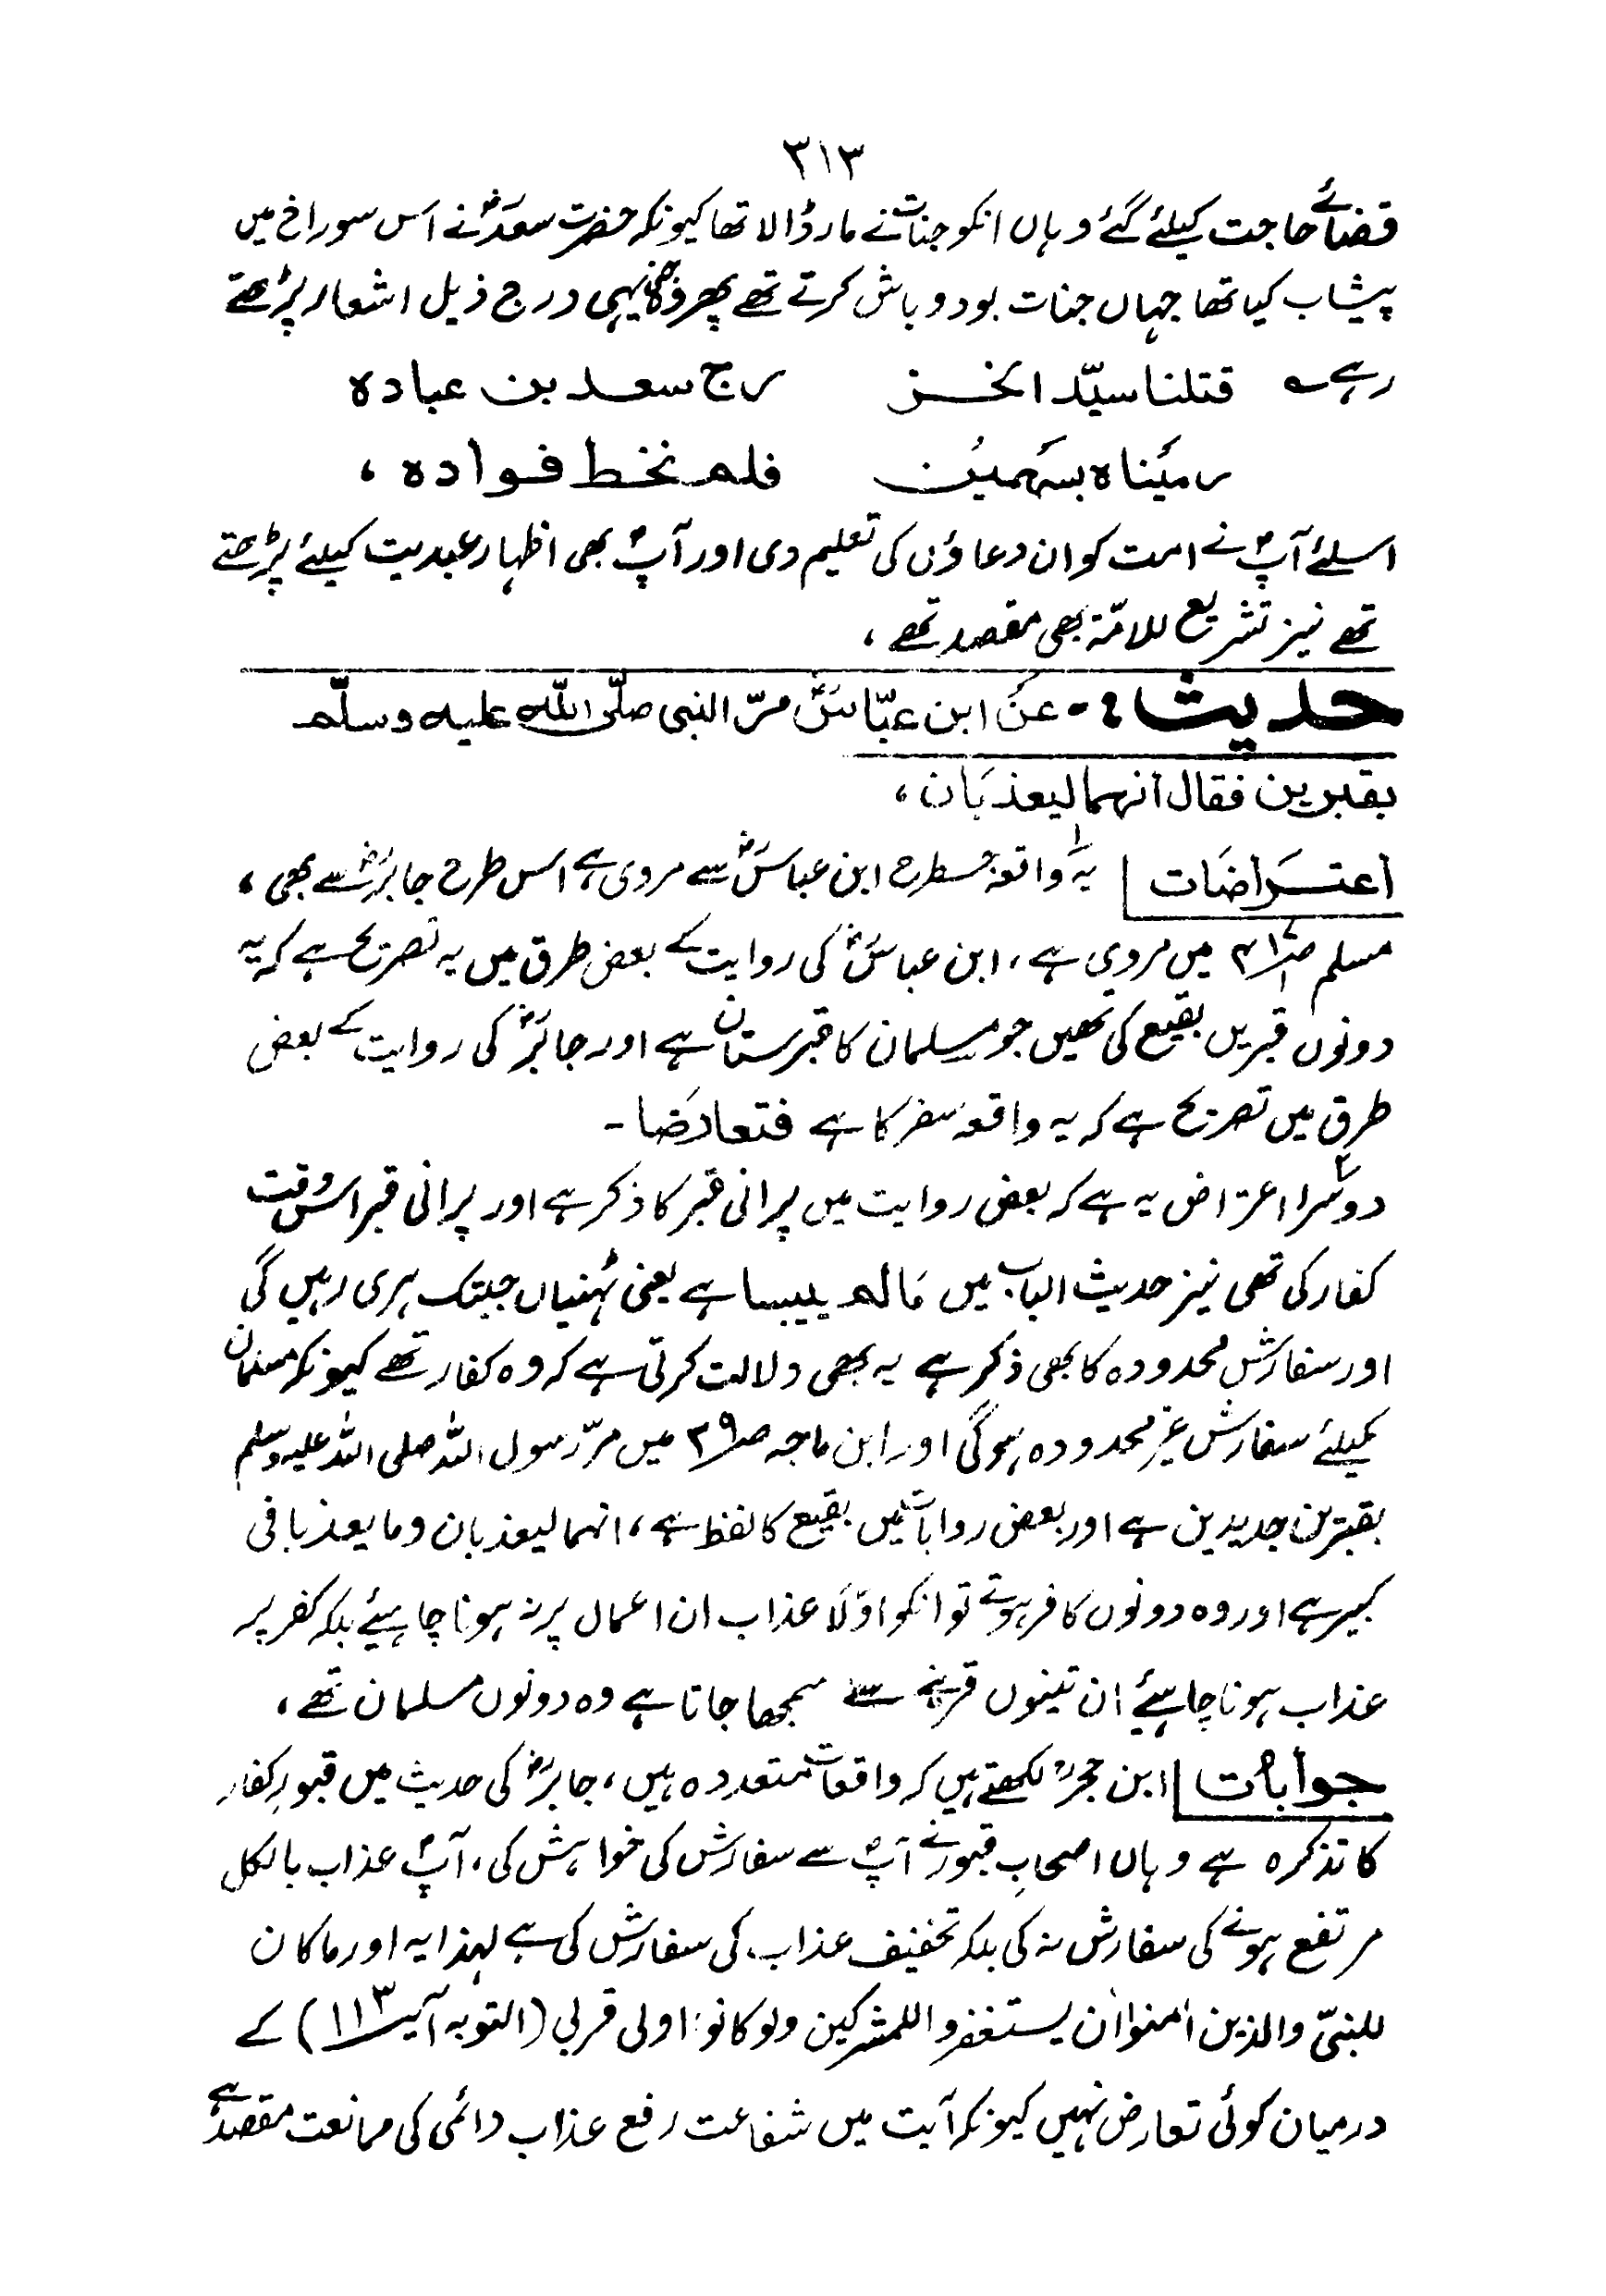 ۳۱۳
قضائے حاجت کیلئے گئے وہاں انکو جنات نے مارڈالا تھا کیونکہ حضرت سعدؓ نے اس سوراخ میں
پیشاب کیا تھا جہاں جنات بود و باش کرتے تھے پھر وہی درج ذیل اشعار پڑھتے
رہے ؎ قتلنا سیّد الخز رج سعد بن عبادہ
رمیناہ بسہمین فلم نخط فوادہ ،
اسلئے آپؐ نے امت کو ان دعاؤں کی تعلیم دی اور آپؐ بھی اظہار عبدیت کیلئے پڑھتے
تھے نیز تشریع للامّۃ بھی مقصد تھے ،
حدیث :- عن ابن عبّاسؓ مرّ النبی صلّی اللّٰہ علیہ وسلّم
بقبرین فقال انہما لیعذبان ،
اعتراضات یہ واقعہ جسطرح ابن عباسؓ سے مروی ہے اس طرح جابرؓ سے بھی ،
مسلم میں مروی ہے ، ابن عباسؓ کی روایت کے بعض طرق میں یہ تصریح ہے کہ یہ
دونوں قبریں بقیع کی تھیں جو مسلمان کا قبرستان ہے اور جابرؓ کی روایت کے بعض
طرق میں تصریح ہے کہ یہ واقعہ سفر کا ہے فتعارضا -
دوسرا اعتراض یہ ہے کہ بعض روایت میں پرانی قبر کا ذکر ہے اور پرانی قبر اسوقت
کفار کی تھی نیز حدیث الباب میں مالم ییبسا ہے یعنی ٹہنیاں جبتک ہری رہیں گی
اور سفارش محدودہ کا بھی ذکر ہے یہ بھی دلالت کرتی ہے کہ وہ کفار تھے کیونکہ مسلمان
کیلئے سفارش غیر محدودہ ہوگی اور ابن ماجہ ص۲۹ میں مرّ رسول اللہ صلی اللہ علیہ وسلم
بقبرین جدیدین ہے اور بعض روایات میں بقیع کا لفظ ہے ، انہما لیعذبان وما یعذبا فی
کبیر ہے اور وہ دونوں کافر ہوتے تو انکو اوّلًا عذاب ان اعمال پر نہ ہونا چاہیئے بلکہ کفر پر
عذاب ہونا چاہیئے ان تینوں قرینے سے سمجھا جاتا ہے وہ دونوں مسلمان تھے ،
جوابات ابن حجرؒ لکھتے ہیں کہ واقعات متعددہ ہیں ، جابرؓ کی حدیث میں قبورِ کفار
کا تذکرہ ہے وہاں اصحابِ قبور نے آپؐ سے سفارش کی خواہش کی ، آپؐ عذاب بالکل
مرتفع ہونے کی سفارش نہ کی بلکہ تخفیف عذاب کی سفارش کی ہے لہذا یہ اور ماکان
للنبیّ والذین اٰمنوا ان یستغفروا للمشرکین ولو کانوا اولی قربی (التوبہ آیت ۱۱۳) کے
درمیان کوئی تعارض نہیں کیونکہ آیت میں شفاعت رفع عذاب دائمی کی ممانعت مقصد ہے